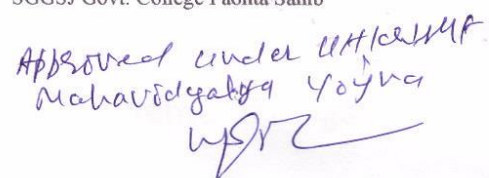 SGGSJ Govt. College Paonta Sahib
Approved under
Mahavidyalya Yojna